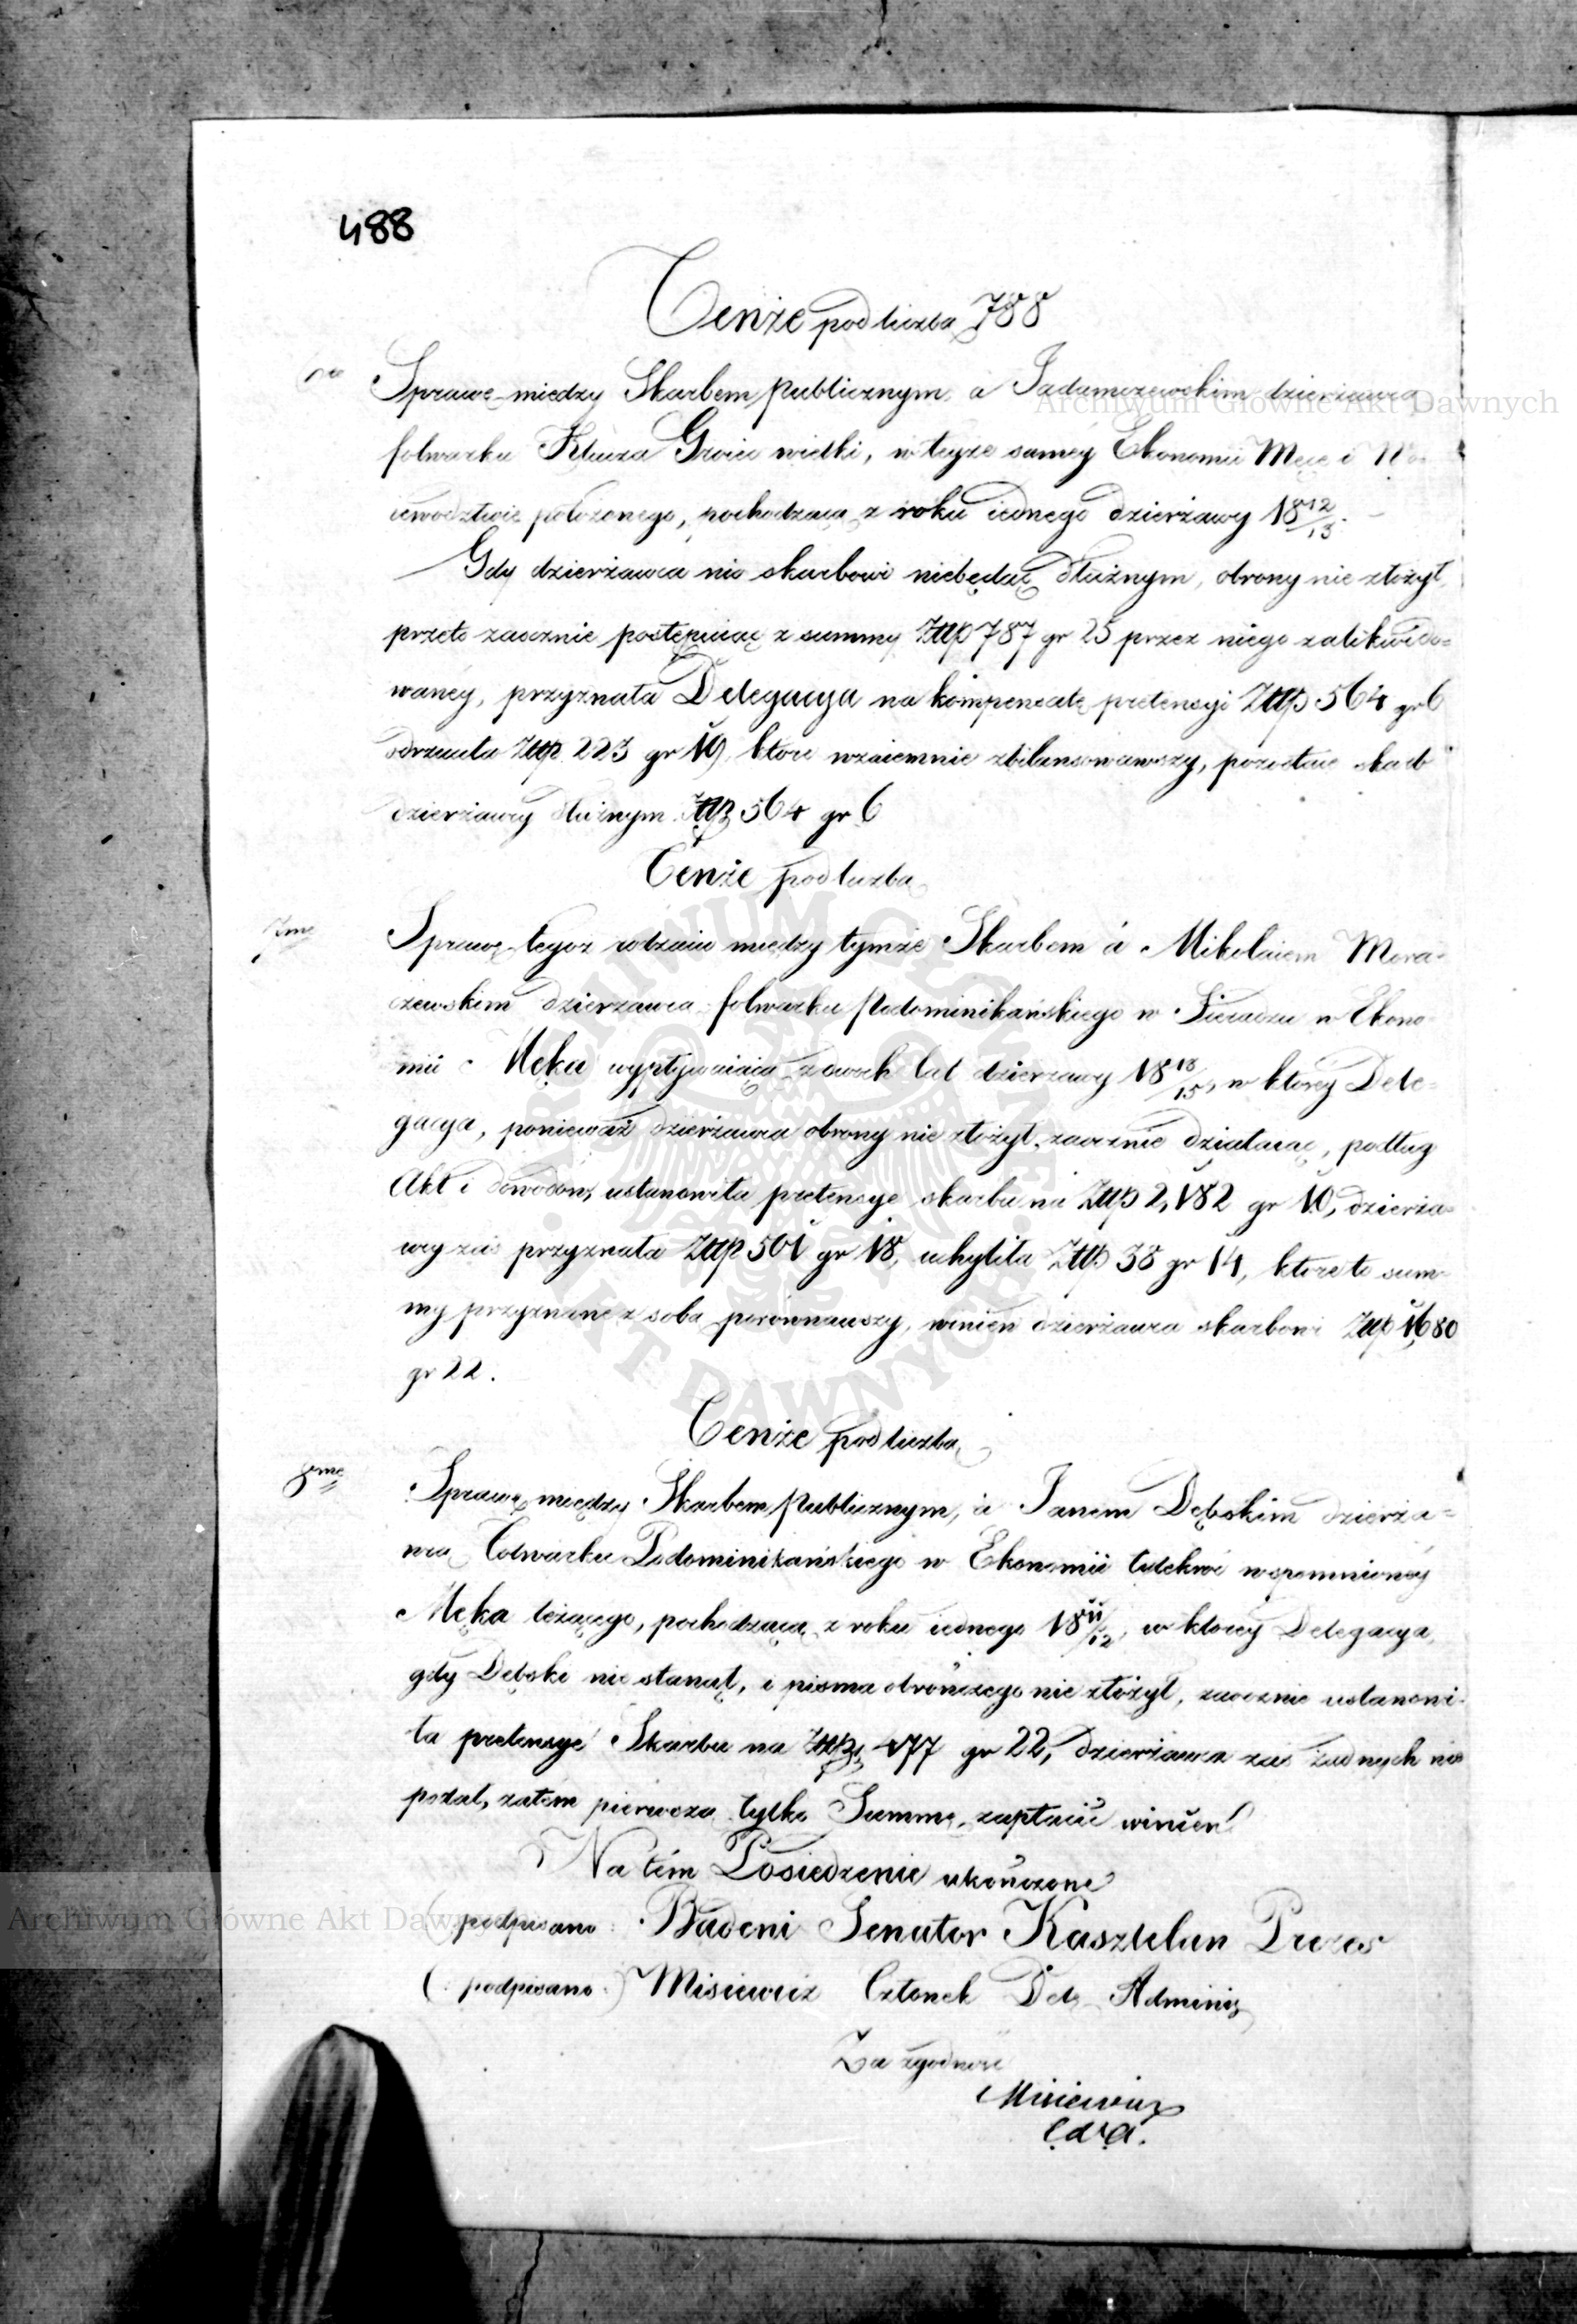 488
Tenże pod liczbą 788
Sprawę między Skarbem Publicznym a Jadamczewskim dzierżawcą
folwarku Klucza Groice wielki, w teyże samey Ekonomii Męce i Wo
iewodztwie położonego, pochodzącą z roku iednego dzierżawy 1812/13.
Gdy dzierżawca nic skarbowi niebędąc dłużnym, obrony nie złożył,
przeto zaocznie postępuiąc z summy Złłp 787 gr 25 przez niego zalikwido=
waney, przyznała Delegacya na kompensatę pretensyi Złłp 564 gr 6
odrzuciła Złłp 223 gr 19, które wzaiemnie zbilansowawszy, pozostaie skarb
dzierżawcy dłużnym Złłp 564 gr 6
Tenże pod liczbą
7me Sprawę tegoż rodzaiu między tymże Skarbem á Mikołaiem Mora=
czewskim dzierżawcą folwarku Podominikańskiego w Sieradzu w Ekono
mii Męka wypływaiącą z dwóch lat dzierżawy 1813/15, w którey Dele=
gacya, ponieważ dzierżawca obrony nie złożył, zaocznie działaiąc, podług
Akt i dowodów, ustanowiła pretensye skarbu na Złłp 2,182 gr 10, dzierża=
wcy zaś przyznała Złłp 501 gr 18, uchyliła Złłp 38 gr 14, które to sum=
my przyznane z sobą porównawszy, winien dzierżawca skarbowi Złłp 1,680
gr 22.
Tenże pod liczbą
8me Sprawę między Skarbem Publicznym, á Janem Dębskim dzierża=
wcą Folwarku Podominikańskiego w Ekonomii tylekroć wspomnioney
Męka leżącego, pochodzącą z roku iednego 1811/12, w którey Delegacya,
gdy Dębski nie stanął, i pisma obrończego nie złożył, zaocznie ustanowi=
ła pretensye Skarbu na Złłp 477 gr 22, dzierżawca zaś żadnych nie
podał, zatem pierwszą tylko Summę zapłacić winien.
Na tém Posiedzenie ukończone
(podpisano: Badeni Senator Kasztelan Prezes
(: podpisano :) Misiewicz Członek Del. Adminis
Za zgodność
Misiewicz
C.D.A.
Archiwum Główne Akt Dawnych
Archiwum Główne Akt Dawnych
ARCHIWUM GŁÓWNE AKT DAWNYCH